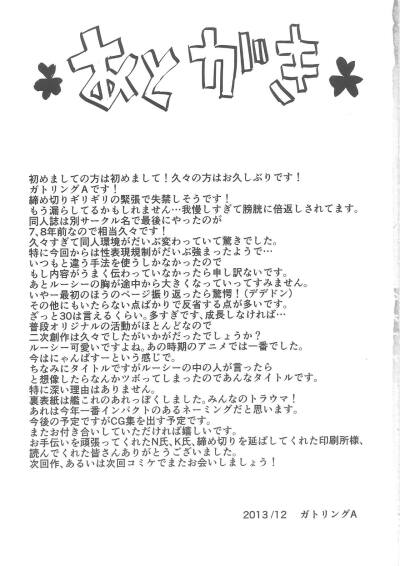 あとがき
初めましての方は初めまして！久々の方はお久しぶりです！
ガトリングAです！
締め切りギリギリの緊張で失禁しそうです！
もう漏らしてるかもしれません…我慢しすぎて膀胱に倍返しされてます。
同人誌は別サークル名で最後にやったのが
7、8年前なので相当久々です！
久々すぎて同人環境がだいぶ変わっていて驚きでした。
特に今回からは性表現規制がだいぶ強まったようで…
いつもと違う手法を使うしかなかったので
もし内容がうまく伝わっていなかったら申し訳ないです。
あとルーシーの胸が途中から大きくなっていってすみません。
いやー最初のほうのページ振り返ったら驚愕！（デデドン）
その他にもいたらない点ばかりで反省する点が多いです。
ざっと30は言えるくらい。多すぎです、成長しなければ…
普段オリジナルの活動がほとんどなので
二次創作は久々でしたがいかがだったでしょうか？
ルーシー可愛いですよね。あの時期のアニメでは一番でした。
今はにゃんぱすーという感じで。
ちなみにタイトルですがルーシーの中の人が言ったら
と想像したらなんかツボってしまったのであんなタイトルです。
特に深い理由はありません。
裏表紙は艦これのあれっぽくしました。みんなのトラウマ！
あれは今年一番インパクトのあるネーミングだと思います。
今後の予定ですがCG集を出す予定です。
またお付き合いしていただければ嬉しいです。
お手伝いを頑張ってくれたN氏、K氏、締め切りを延ばしてくれた印刷所様、
読んでくれた皆さんありがとうございました。
次回作、あるいは次回コミケでまたお会いしましょう！
2013/12 ガトリングA